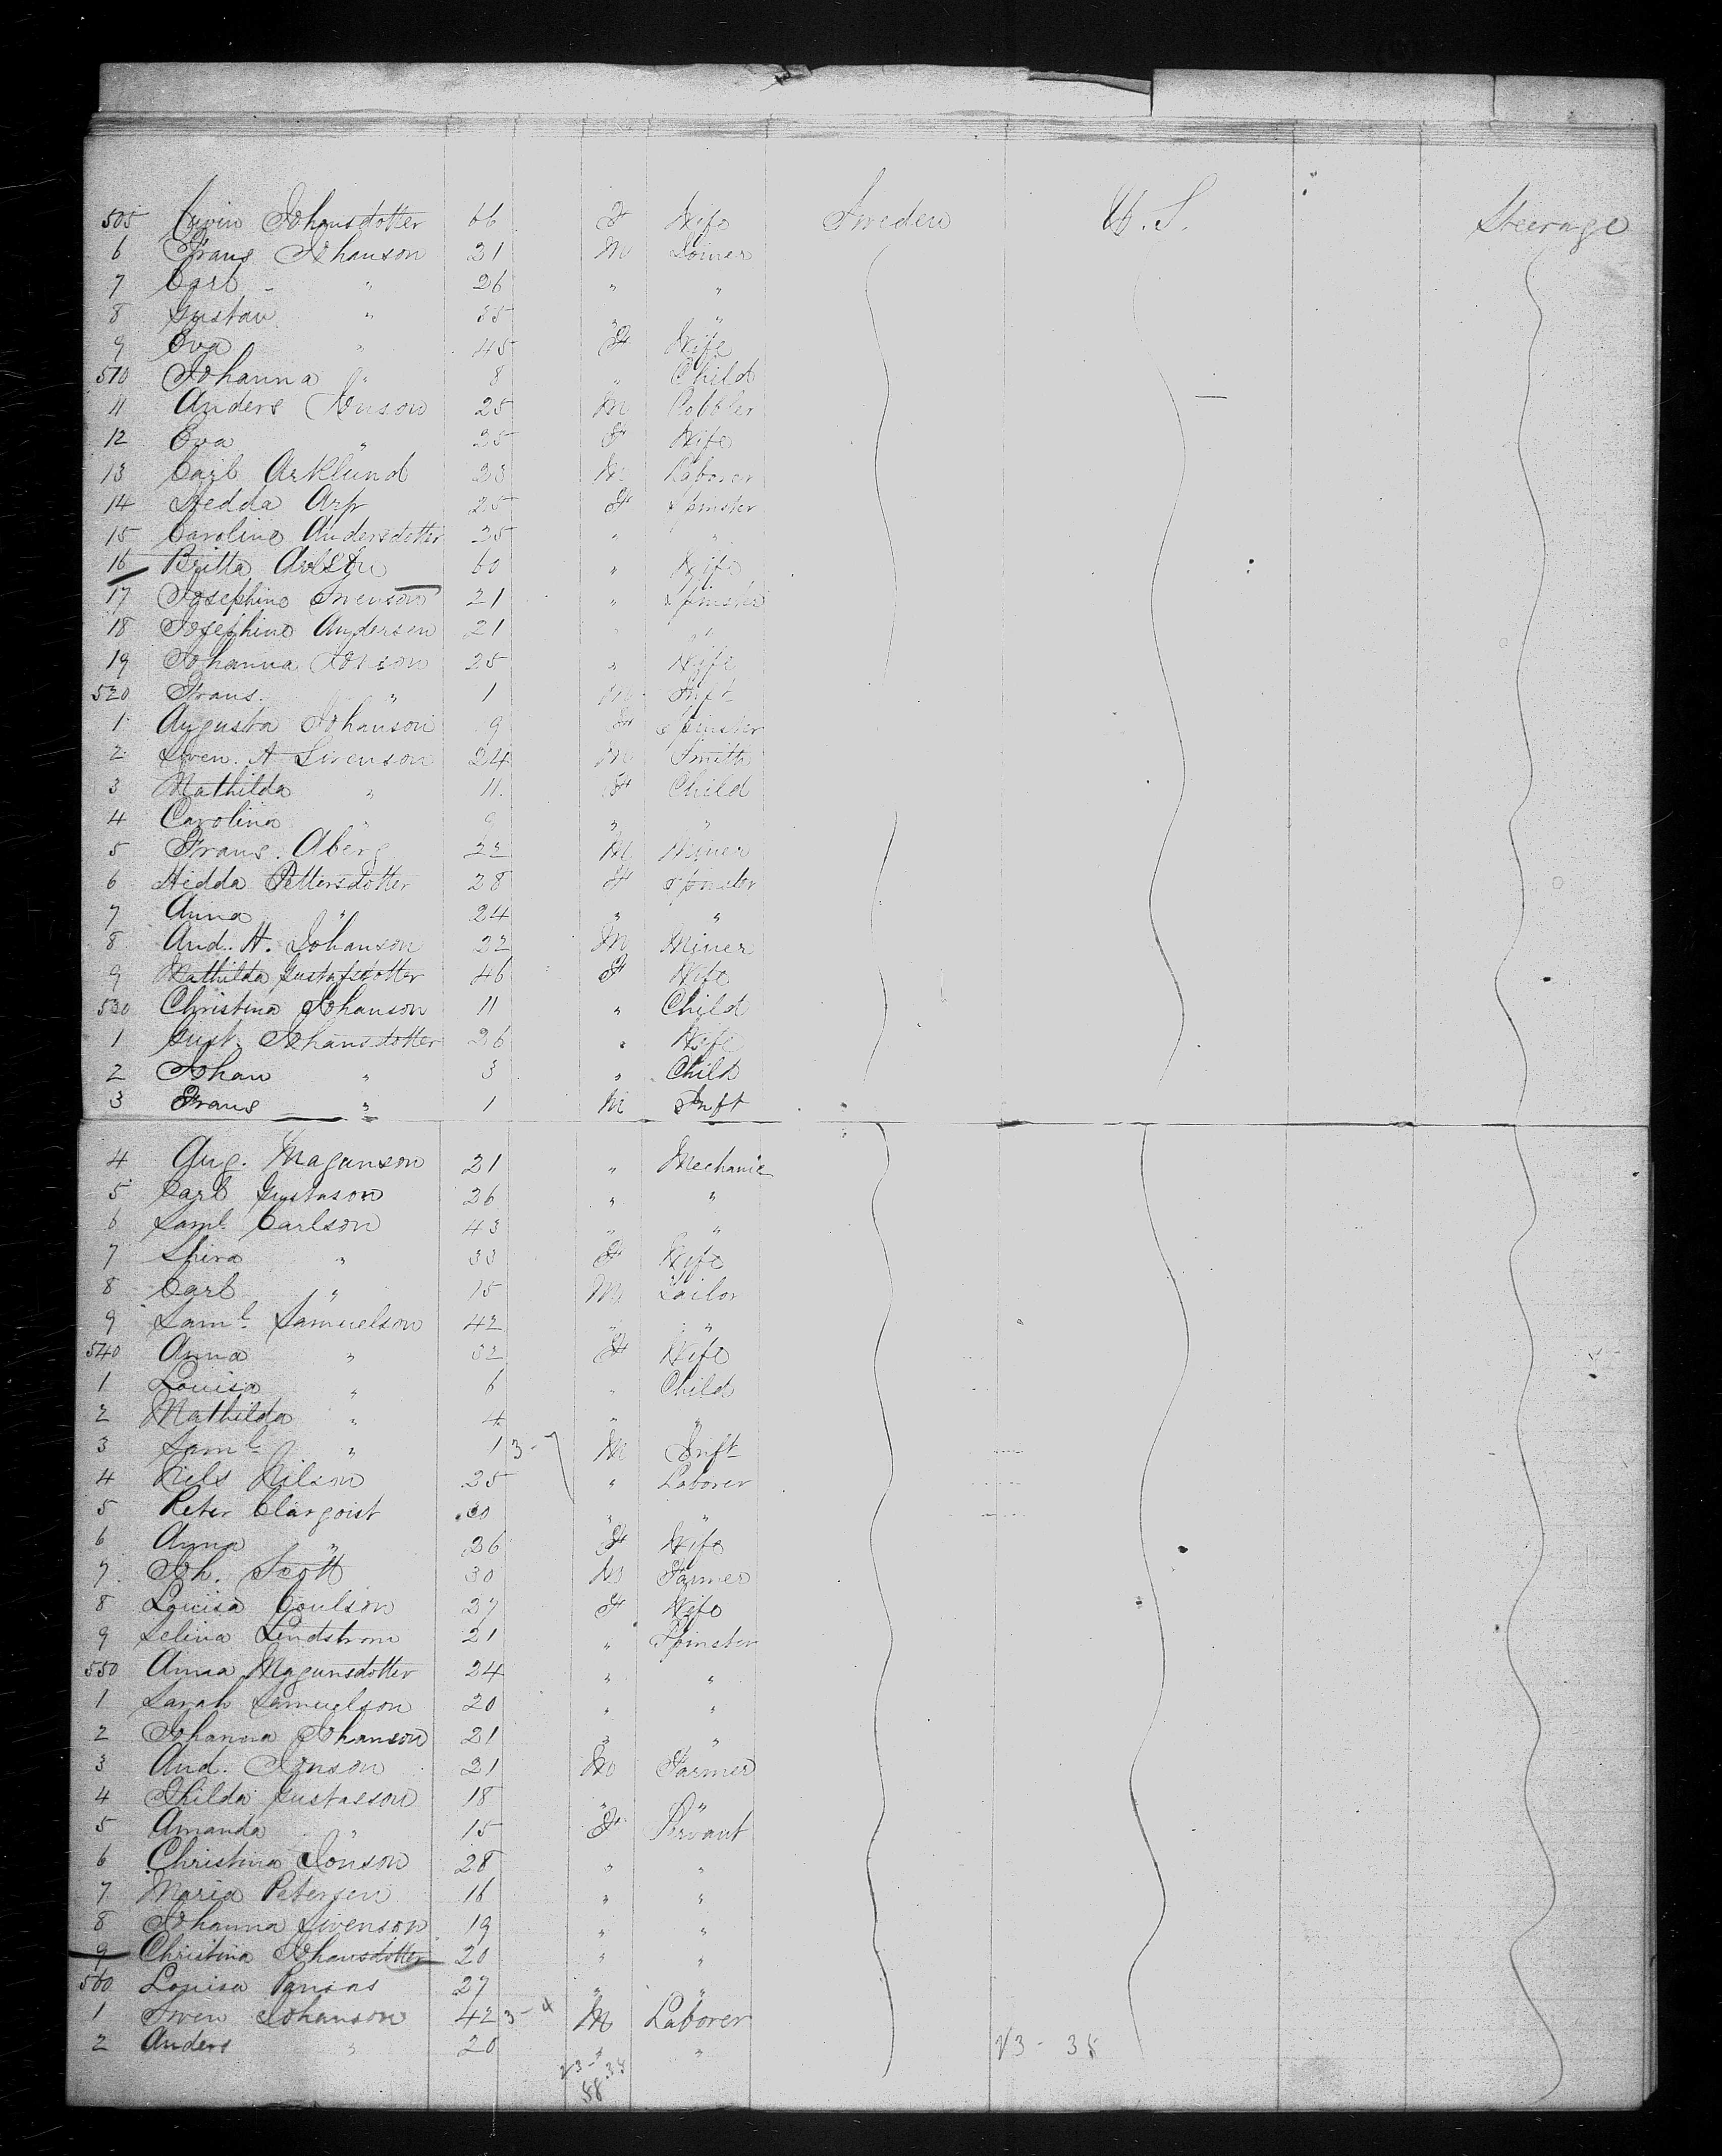 505 Johansdotter 66 F Wife Sweden U.S. Steerage
6 Frans Johanson 21 M Joiner
7 Carl " 26 " "
8 Gustav " 35 " "
9 Eva " 45 F Wife
510 Johanna " 8 " Child
11 Anders Jonson 25 M Cobbler
12 Eva " 25 F Wife
13 Carl Arklund 23 M Laborer
14 Hedda Arp 25 F Spinster
15 Caroline Andersdotter 25 " "
16 Britta 60 " Wife
17 Josephine Svenson 21 " Spinster
18 Josephine Andersen 21 " "
19 Johanna Jonson 25 " Wife
520 Frans " 1 M Inft
1 Augusta Johanson 9 F Spinster
2 Sven A Svenson 24 M Smith
3 Mathilda " 11 F Child
4 Carolina " 9 " "
5 Frans Aberg 22 M Miner
6 Hedda Pettersdotter 28 F Spinster
7 Anna " 24 " "
8 And. H. Johanson 22 M Miner
9 Mathilda Gustafsdotter 46 F Wife
530 Christina Johanson 11 " Child
1 Gust. Johansdotter 26 " Wife
2 Johan " 3 " Child
3 Frans " 1 M Inft
4 Aug. Maganson 21 " Mechanic
5 Carl Gustason 26 " "
6 Saml Carlson 43 " "
7 " 33 F Wife
8 Carl " 15 M Tailor
9 Saml Samuelson 42 " "
540 Anna " 32 F Wife
1 Louisa " 6 " Child
2 Mathilda " 4 " "
3 Saml " 1 3-7 M Inft
4 Nils Nilson 25 " Laborer
5 Peter Clarqoist 30 " "
6 Anna " 26 F Wife
7 Joh. Scott 30 M Farmer
8 Louisa Coulson 27 F Wife
9 Selina Lindstrom 21 " Spinster
550 Anna Magunsdotter 24 " "
1 Sarah Samuelson 20 " "
2 Johanna Johanson 21 " "
3 And. Jonson 21 M Farmer
4 Gustasson 18 " "
5 Amanda " 15 F Servant
6 Christina Jonson 28 " "
7 Maria Petersen 16 " "
8 Johanna Svenson 19 " "
9 Christina Johansdotter 20 " "
560 Louisa 27 " "
1 Sven Johanson 42 3-4 M Laborer
2 Anders " 20 " "
V3-38
88